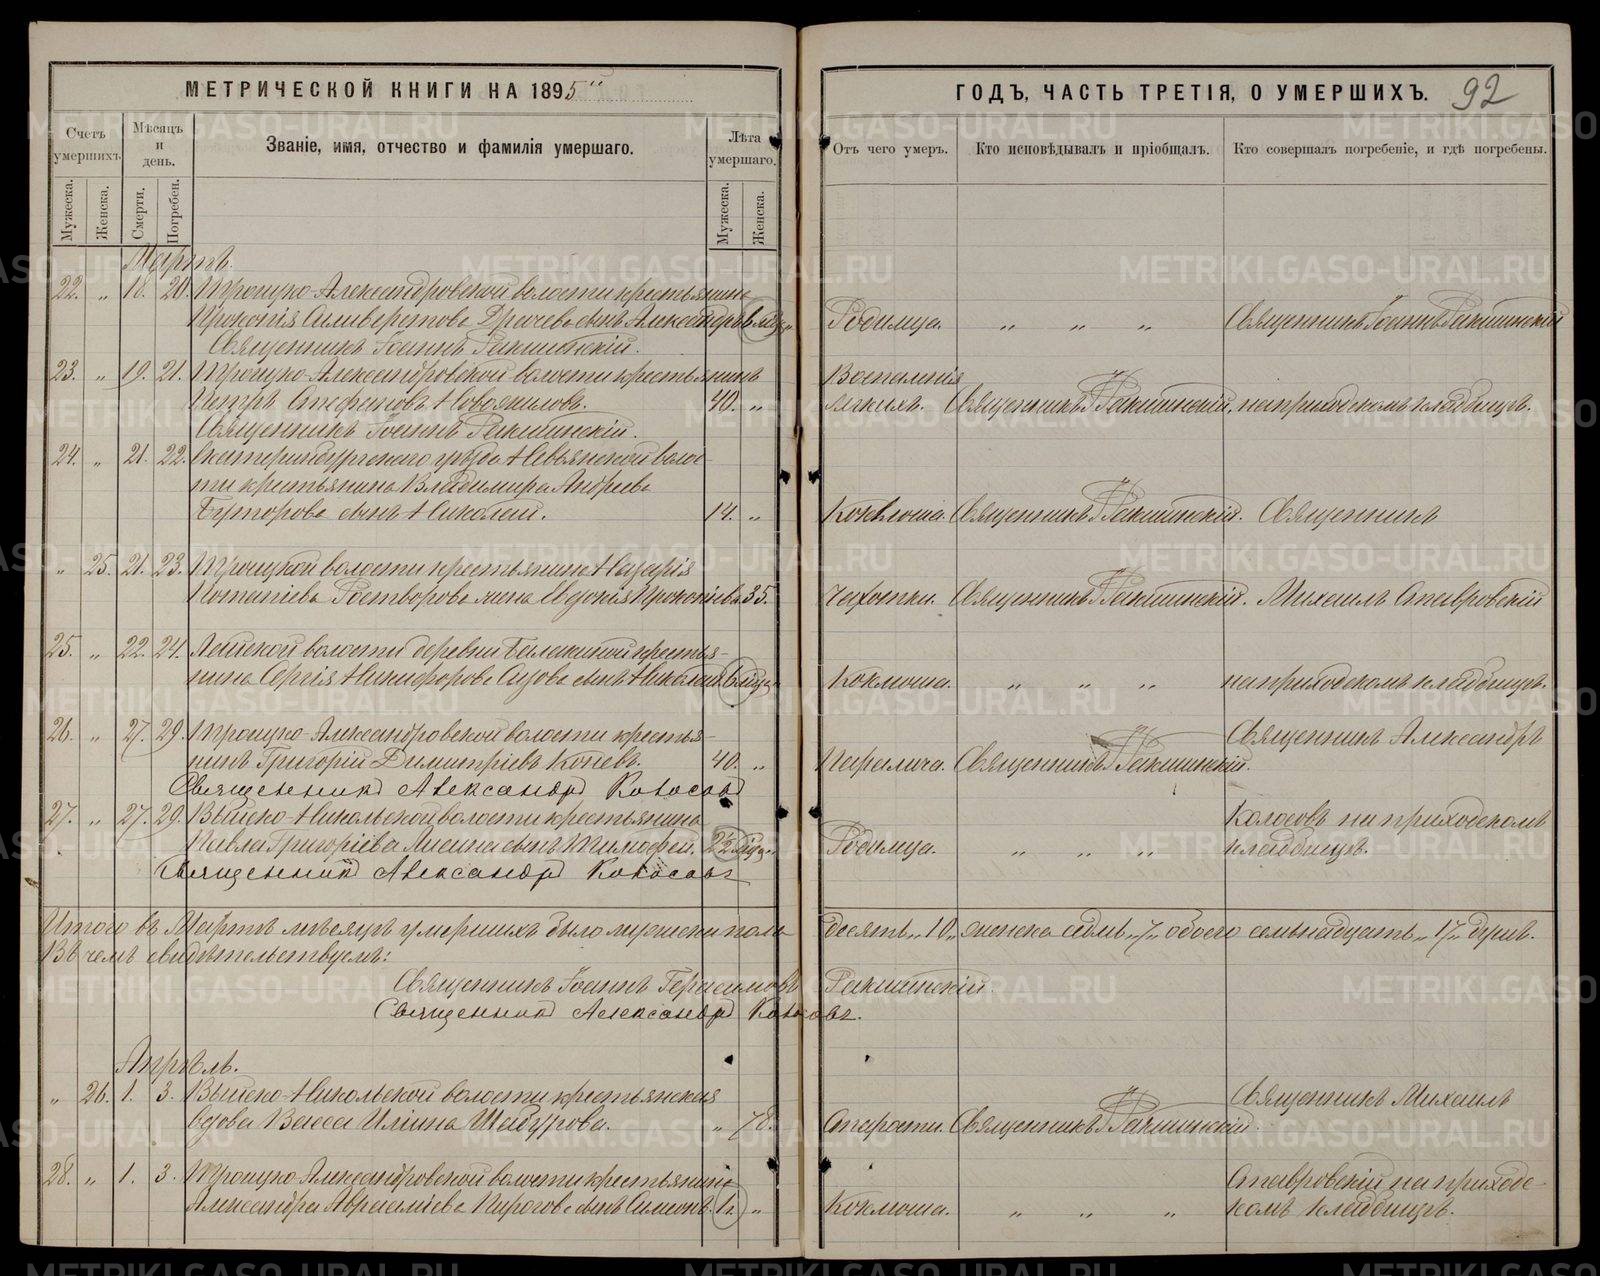 МЕТРИЧЕСКОЙ КНИГИ НА 1895
Счетъ умершихъ.
Мѣсяцъ и день.
Званіе, имя, отчество и фамилія умершаго.
Лѣта умершаго.
Мужеска.
Женска.
Смерти.
Погребен.
Мужеска.
Женска.
Мартъ.
22. „ 18. 20. Троицко-Александровской волости крестьянина
Прокопія Сильверстова сынъ Александръ
Священникъ Іоаннъ Ракшинскій.
23. „ 19. 21. Троицко-Александровской волости крестьянинъ
Петръ Стефановъ 40. „
Священникъ Іоаннъ Ракшинскій.
24. „ 21. 22. Екатеринбургскаго уѣзда Невьянской волос-
ти крестьянина Владимира Андреева
сынъ Николай. 14. „
„ 25. 21. 23. Троицкой волости крестьянина Назарія
Потапіева Растворова жена Евдокія Прокопіева 35.
25. „ 22. 24. волости деревни крестья-
нина Сергія Никифорова Сизова сынъ Николай
26. „ 27. 29. Троицко-Александровской волости крестья-
нинъ Григорій Димитріевъ Копевъ. 40. „
Священникъ Александръ Колосовъ
27. „ 27. 29. Выйско-Никольской волости крестьянина
Павла Григоріева Лисина сынъ Тимофей.
Священникъ Александръ Колосовъ
Итого въ Мартѣ мѣсяцѣ умершихъ было мужеска пола
Въ чемъ свидѣтельствуемъ:
Священникъ Іоаннъ Герасимовъ
Священникъ Александръ Колосовъ.
Апрѣль.
„ 26. 1. 3. Выйско-Никольской волости крестьянская
вдова Васса Иліина Шадурова. „ 78.
28. „ 1. 3. Троицко-Александровской волости крестьянина
Александра Пирогова сынъ Симеонъ.
ГОДЪ, ЧАСТЬ ТРЕТІЯ, О УМЕРШИХЪ. 92
Отъ чего умеръ.
Кто исповѣдывалъ и пріобщалъ.
Кто совершалъ погребеніе, и гдѣ погребены.
Родимца. „ „ „ Священникъ Іоаннъ Ракшинскій
Воспаленія
легкихъ. Священникъ Ракшинскій, на приходскомъ кладбищѣ.
Коклюша. Священникъ Ракшинскій. Священникъ
Чахотки. Священникъ Ракшинскій. Михаилъ Ставровскій
Коклюша. „ „ „ на приходскомъ кладбищѣ.
Священникъ Александръ
Паралича. Священникъ Ракшинскій.
Колосовъ на приходскомъ
Родимца. „ „ „ кладбищѣ.
десять „10„ женска семь „7„ обоего семьнадцать „17„ душъ.
Ракшинскій
Священникъ Михаилъ
Старости. Священникъ Ракшинскій.
Ставровскій на приходс-
Коклюша. „ „ „ комъ кладбищѣ.
METRIKI.GASO-URAL.RU